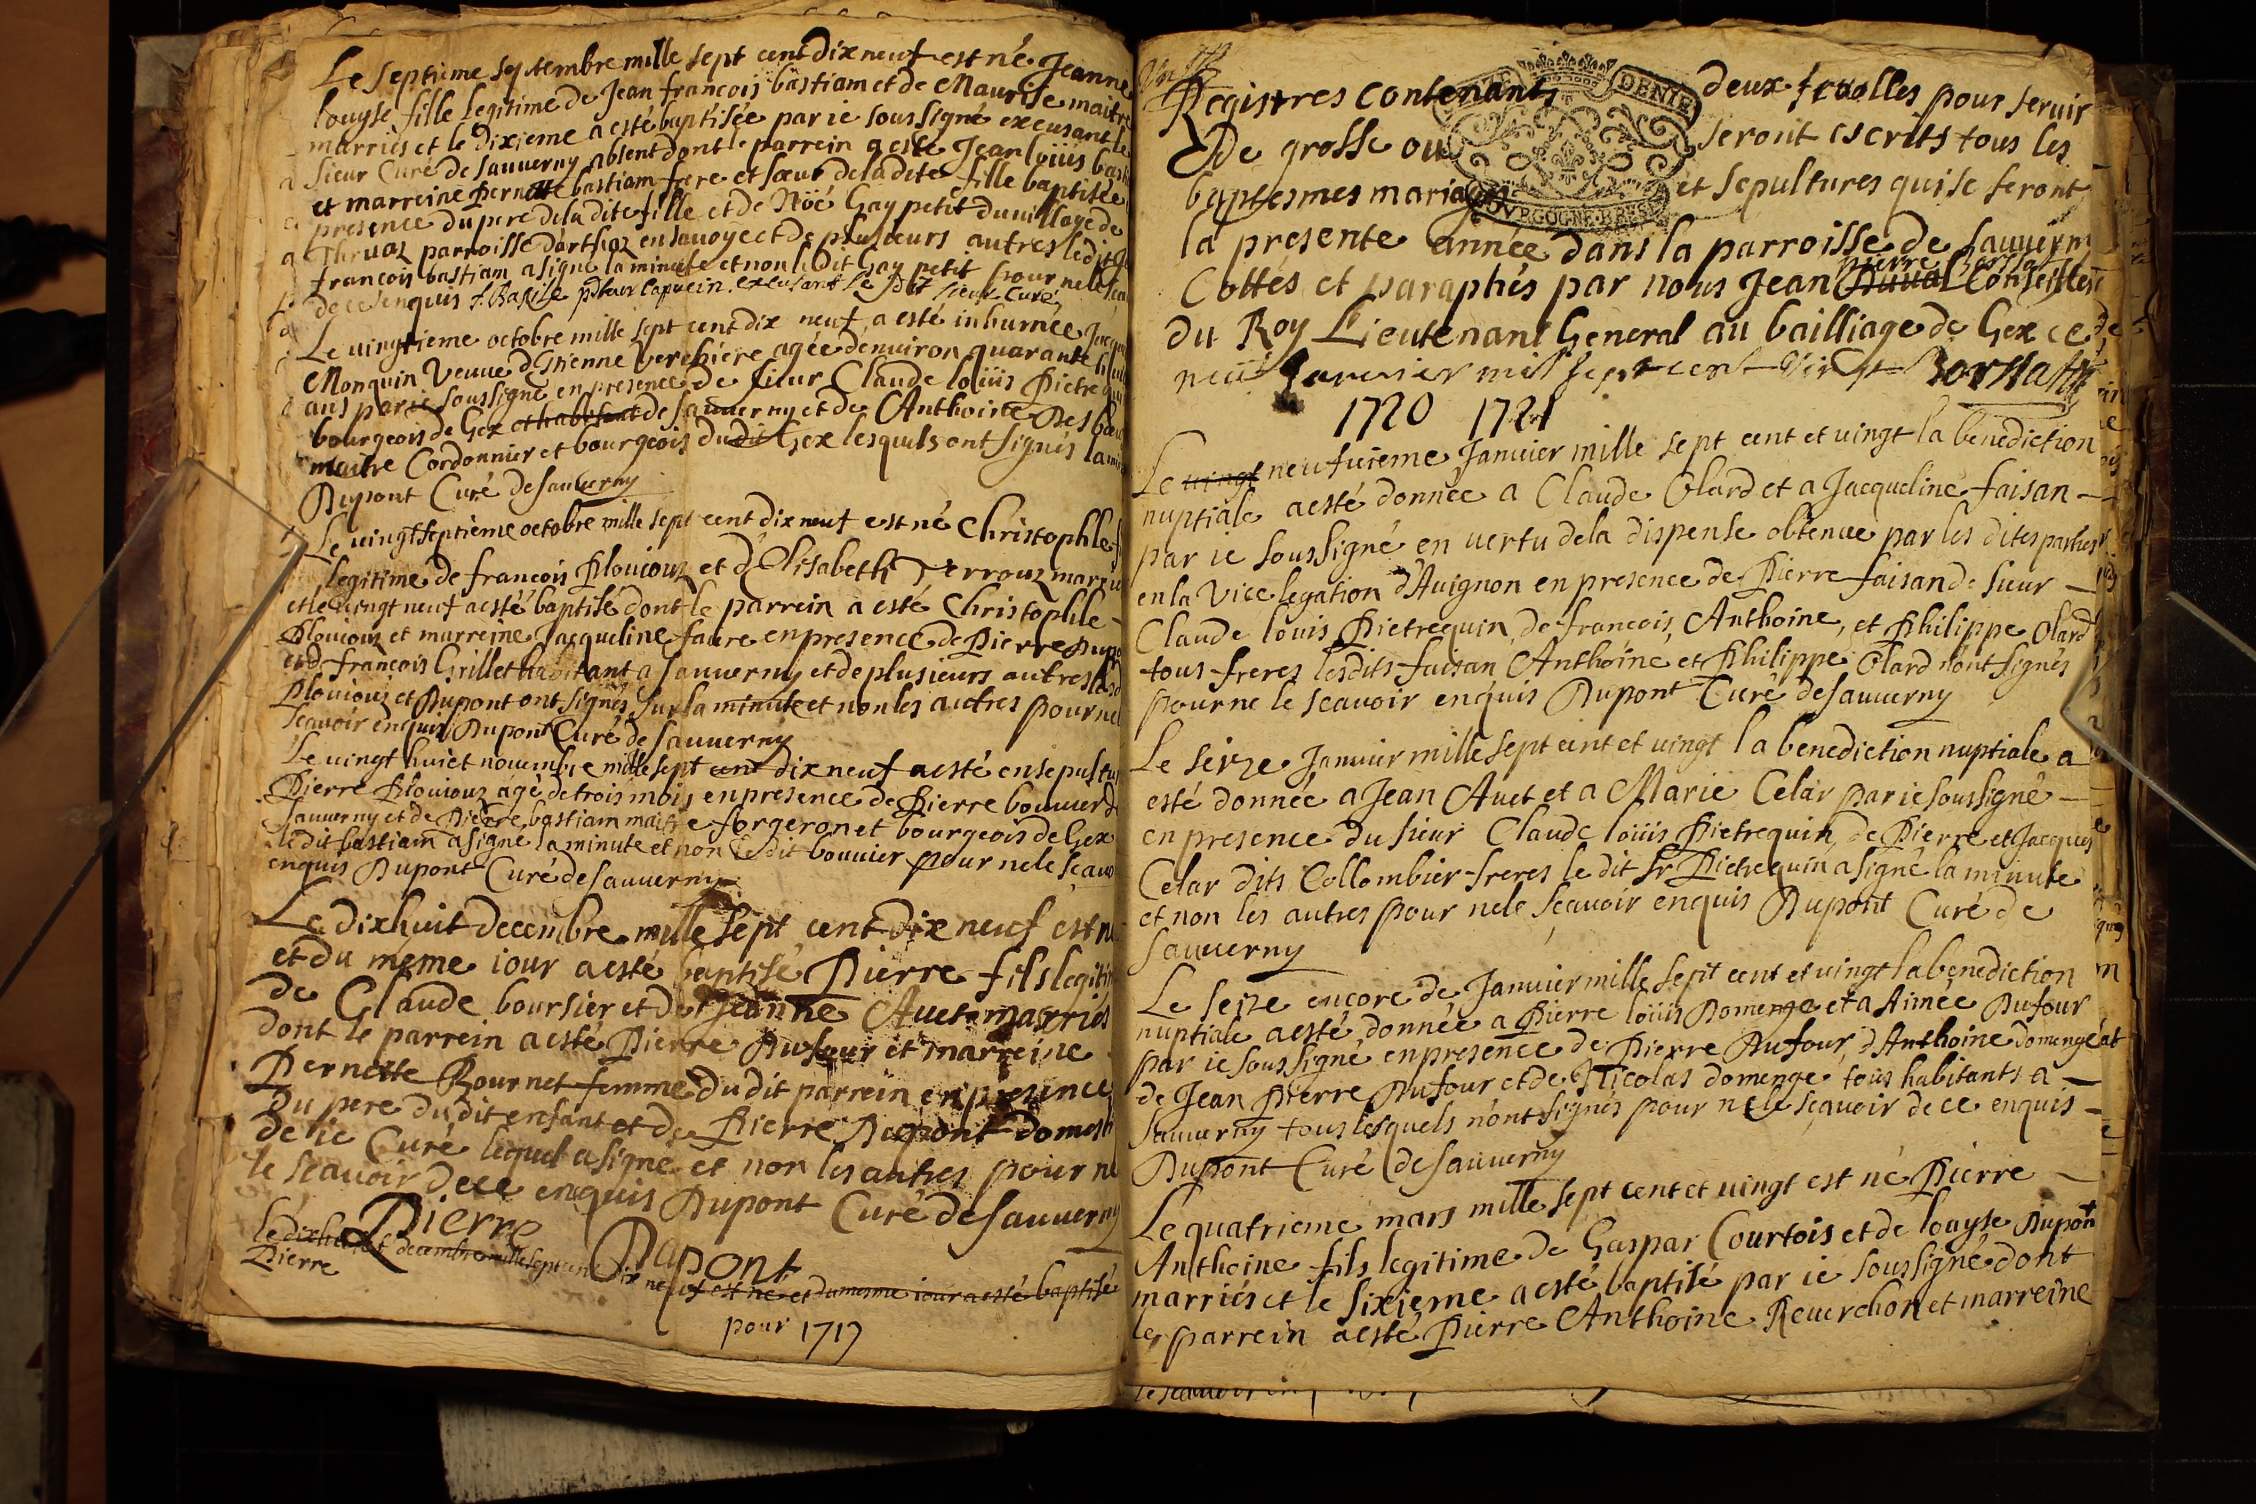 Le septieme septembre mille sept cent dix neuf est né Jeanne
louyse fille legitime de Jean francois bastiam et de Maurise maitre
marriés et le dixieme a esté baptisée par ie soussigné excusant le
sieur Curé de sauverny absent dont le parrein a esté Jean loüis
et marreine Pernette bastiam frere et sœur de la dite fille baptisée
presence du pere de la dite fille et de Noé Gay petit du village de
parroisse d'arthaz en savoye et de plusieurs autres ledit
francois bastiam a signé la minute et non ledit Gay petit pour ne le
de ce enquis f. Basile capucin excusant le dit sieur Curé
Le vingtieme octobre mille sept cent dix neuf a esté inhumée
Monquin Veuve d'Etienne Verchiere agée d'environ quarante
ans par ie soussigné en presence de sieur Claude loüis Pietrequin
bourgeois de Gex et habitant de sauverny et de Anthoine Des
maitre Cordonnier et bourgeois du dit Gex lesquels ont signés la
Dupont Curé de sauverny
Le vingt septieme octobre mille sept cent dix neuf est né Christophle
legitime de francois Plouiouz et d'Elisabeth Perrouz
et le vingt neuf a esté baptisé dont le parrein a esté Christophle
Plouiouz et marreine Jacqueline faure en presence de Pierre
et de francois Grillet habitant a sauverny et de plusieurs autres
Plouiouz et Dupont ont signés sur la minute et non les autres pour ne
scavoir enquis Dupont Curé de sauverny
Le vingt huict novembre mille sept cent dix neuf a esté ensepultu
Pierre Plouiouz agé de trois mois en presence de Pierre bouvier de
sauverny et de Pierre bastiam maitre forgeron et bourgeois de Gex
le dit bastiam a signé la minute et non le dit bouvier pour ne le scavo
enquis Dupont Curé de sauverny
Le dixhuit decembre mille sept cent dix neuf est
et du méme iour a esté baptisé Pierre fils legiti
de Claude boursier et de Jeanne Auet marriés
dont le parrein a esté Pierre Dufour et marreine
Pernette Bournet femme du dit parrein en presence
du pere du dit enfant et de Pierre Dupont domesti
de ie Curé lequel a signé et non les autres pour ne
le scavoir de ce enquis Dupont Curé de sauverny
Pierre
Dupont
le dixhuit decembre mille sept cent dix neuf est né et du mesme iour a esté baptisé
Pierre
pour 1719
Registres contenants deux feuolles pour servir
De grosse ou seront escrits tous les
baptesmes mariages et sepultures qui se feront
DENIE
BOVRGOGNE BRES
la presente année dans la parroisse de sauvern
pierre borssat
Cottés et paraphés par nous Jean Duual Conseiller
du Roy Lieutenant General au bailliage de Gex ce
neuf Janvier mil sept cent vingt Borssat
1720 1721
Le vingt neufuieme Janvier mille sept cent et vingt la benediction
nuptiale a esté donnée a Claude Olard et a Jacqueline faisan
par ie soussigné en vertu de la dispense obtenue par les dites parties
en la Vice legation d'Avignon en presence de Pierre faisan de sieur
Claude louis Pietrequin, de francois, Anthoine, et Philippe Olard
tous freres les dits faisan Anthoine et Philippe Olard n'ont signés
pour ne le scavoir enquis Dupont Curé de sauverny
Le seize Janvier mille sept cent et vingt la benediction nuptiale a
esté donnée a Jean Auet et a Marie Celar par ie soussigné
en presence du sieur Claude loüis Pietrequin, de Pierre et Jacques
Celar dits Collombier freres le dit Sr Pietrequin a signé la minute
et non les autres pour ne le scavoir enquis Dupont Curé de
sauverny
Le seize encore de Janvier mille sept cent et vingt la benediction
nuptiale a esté donnée a Pierre loüis Domenge et a Aimée Dufour
par ie soussigné en presence de Pierre Dufour, d'Anthoine domenge et
de Jean Pierre Dufour et de Nicolas domenge, tous habitants a
sauverny tous lesquels n'ont signés pour ne le scavoir de ce enquis
Dupont Curé de sauverny
Le quatrieme mars mille sept cent et vingt est né Pierre
Anthoine fils legitime de Gaspar Courtois et de louyse Dupont
marriés et le sixieme a esté baptisé par ie soussigné dont
le parrein a esté Pierre Anthoine Reverchon et marreine